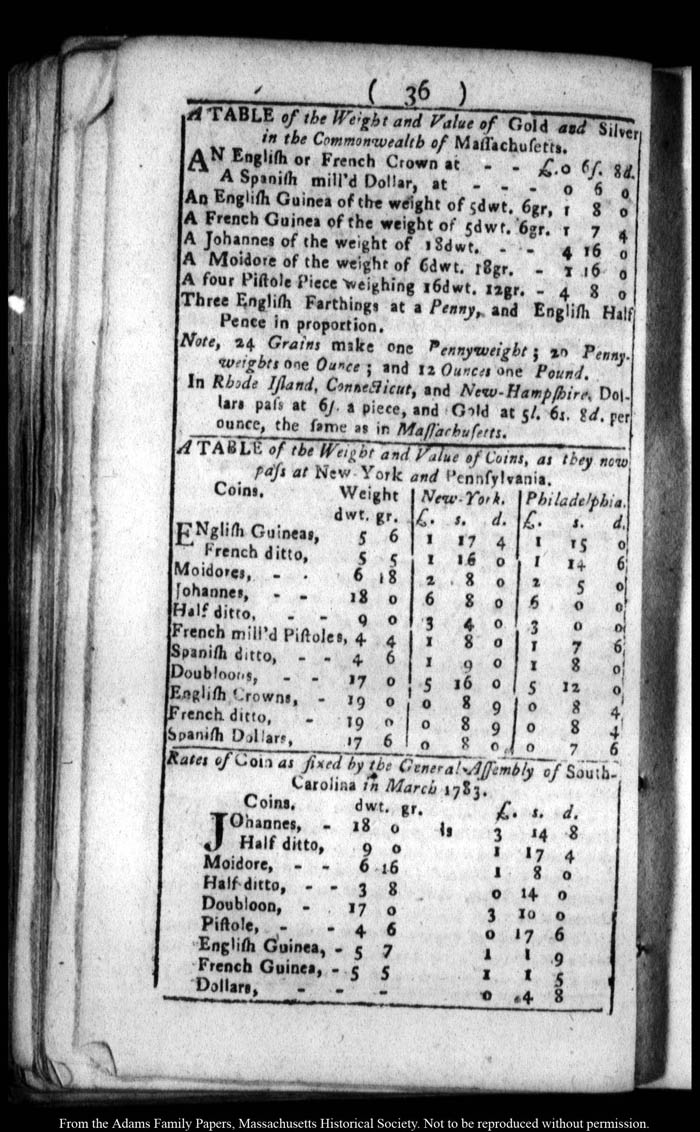 ( 36 )
A TABLE of the Weight and Value of Gold and Silver
in the Commonwealth of Maſſachuſetts.
AN Engliſh or French Crown at - - £.0 6ſ. 8d.
A Spaniſh mill'd Dollar, at - - - 0 6 0
An Engliſh Guinea of the weight of 5dwt. 6gr, 1 8 0
A French Guinea of the weight of 5dwt. 6gr. 1 7 4
A Johannes of the weight of 18dwt. - - 4 16 0
A Moidore of the weight of 6dwt. 18gr. - 1 16 0
A four Piſtole Piece weighing 16dwt. 12gr. - 4 8 0
Three Engliſh Farthings at a Penny, and Engliſh Half
Pence in proportion.
Note, 24 Grains make one Pennyweight; 20 Penny-
weights one Ounce; and 12 Ounces one Pound.
In Rhode Iſland, Connecticut, and New-Hampſhire, Dol-
lars paſs at 6ſ. a piece, and Gold at 5l. 6s. 8d. per
ounce, the ſame as in Maſſachuſetts.
A TABLE of the Weight and Value of Coins, as they now
paſs at New-York and Pennſylvania.
Coins. Weight New-York. Philadelphia.
dwt. gr. £. s. d. £. s. d.
ENgliſh Guineas, 5 6 1 17 4 1 15 0
French ditto, 5 5 1 16 0 1 14 6
Moidores, - - 6 18 2 8 0 2 5 0
Johannes, - - 18 0 6 8 0 6 0 0
Half ditto, - - 9 0 3 4 0 3 0 0
French mill'd Piſtoles, 4 4 1 8 0 1 7 6
Spaniſh ditto, - - 4 6 1 9 0 1 8 0
Doubloons, - - 17 0 5 16 0 5 12 0
Engliſh Crowns, - 19 0 0 8 9 0 8 4
French ditto, - 19 0 0 8 9 0 8 4
Spaniſh Dollars, 17 6 0 8 0 0 7 6
Rates of Coin as fixed by the General-Aſſembly of South-
Carolina in March 1783.
Coins. dwt. gr. £. s. d.
JOhannes, - 18 0 is 3 14 8
Half ditto, 9 0 1 17 4
Moidore, - - 6 16 1 8 0
Half ditto, - - 3 8 0 14 0
Doubloon, - 17 0 3 10 0
Piſtole, - - 4 6 0 17 6
Engliſh Guinea, - 5 7 1 1 9
French Guinea, - 5 5 1 1 5
Dollars, - - - 0 4 8
From the Adams Family Papers, Massachusetts Historical Society. Not to be reproduced without permission.